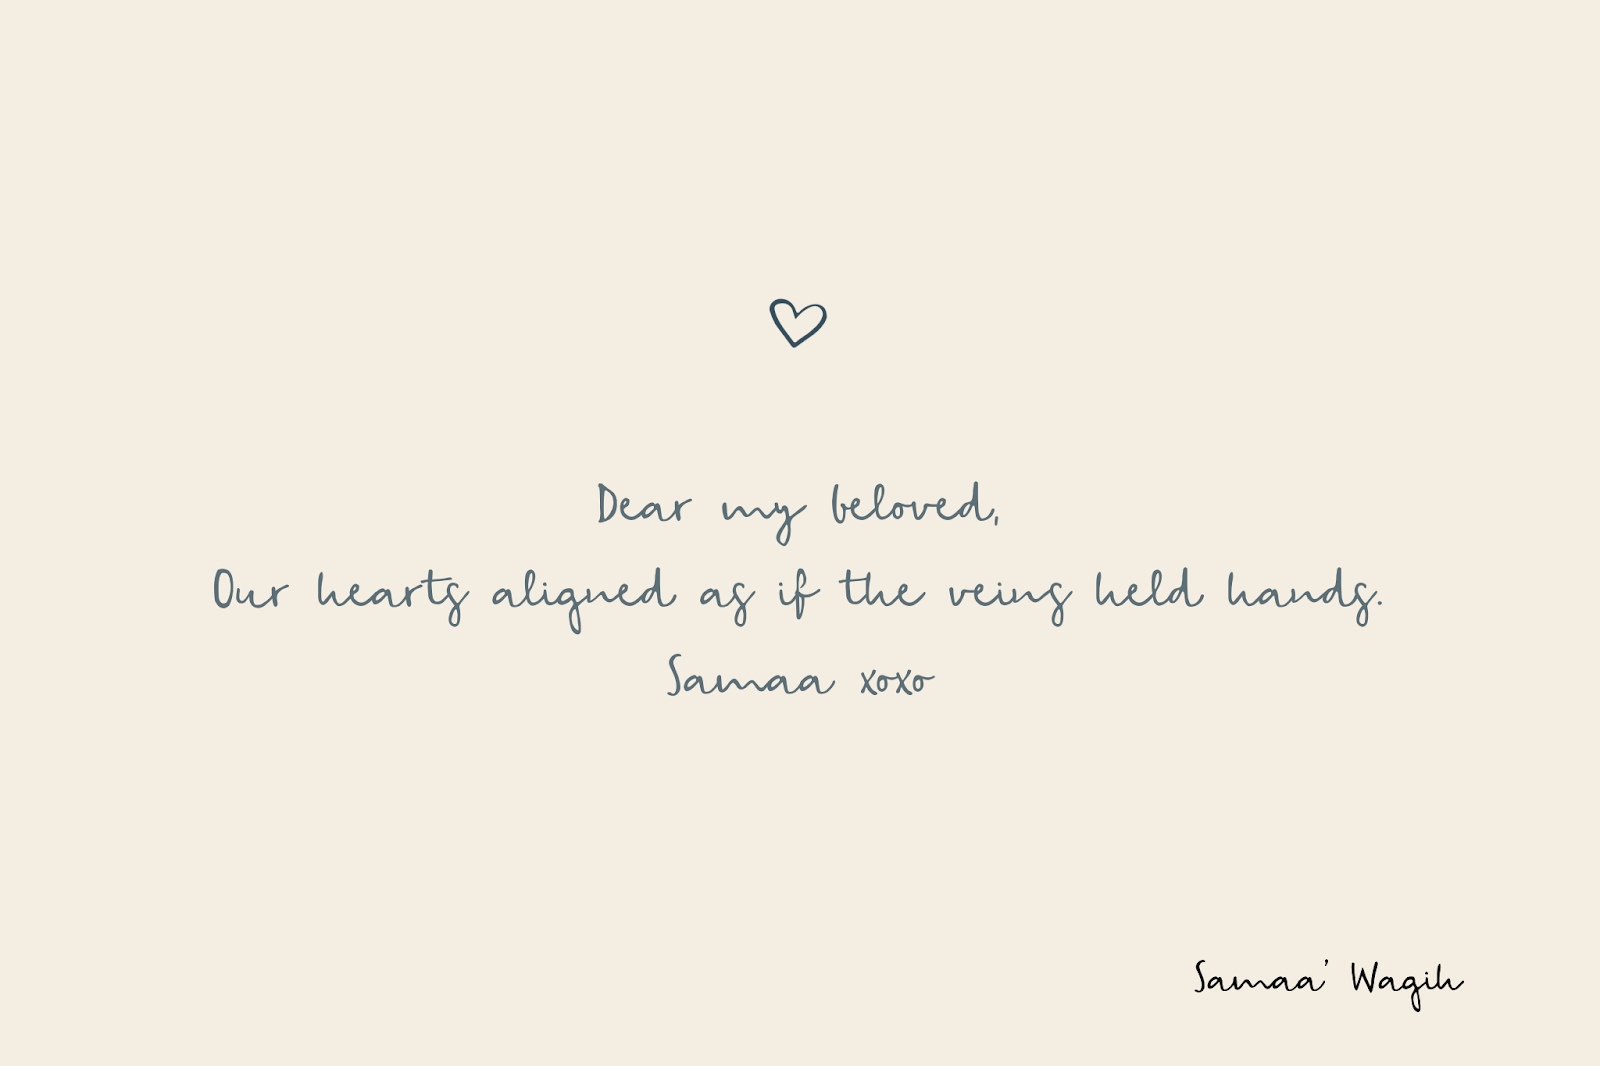 Dear my beloved,
Our hearts aligned as if the veins held hands.
Samaa xoxo
Samaa' Wagih